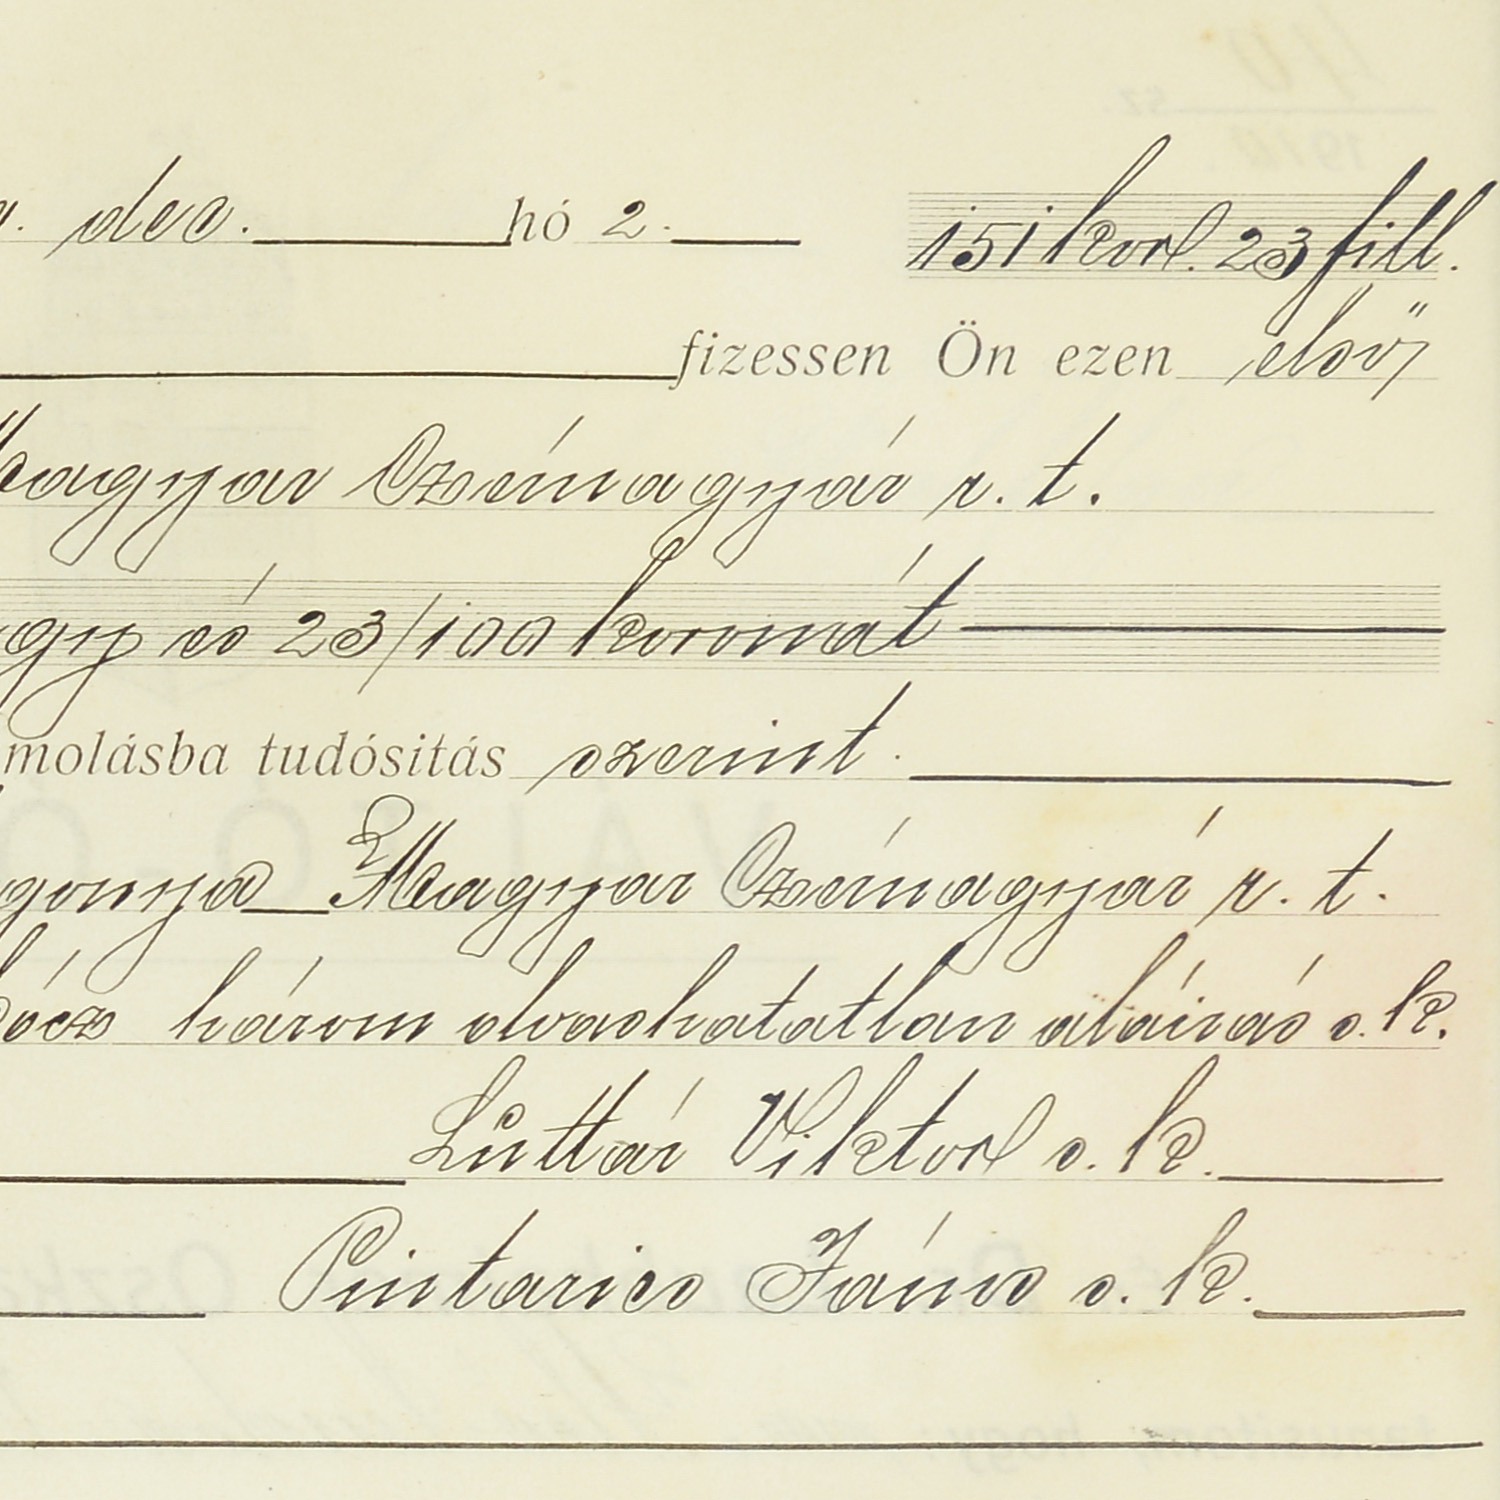 dec. hó 2. 151 kor. 23 fill.
fizessen Ön ezen első
Magyar Czérnagyár r. t.
egy és 23/100 koronát
molásba tudósitás szerint.
Magyar Czérnagyár r. t.
három olvashatatlan aláirás s. k.
Luttár Viktor s. k.
Pintarics János s. k.